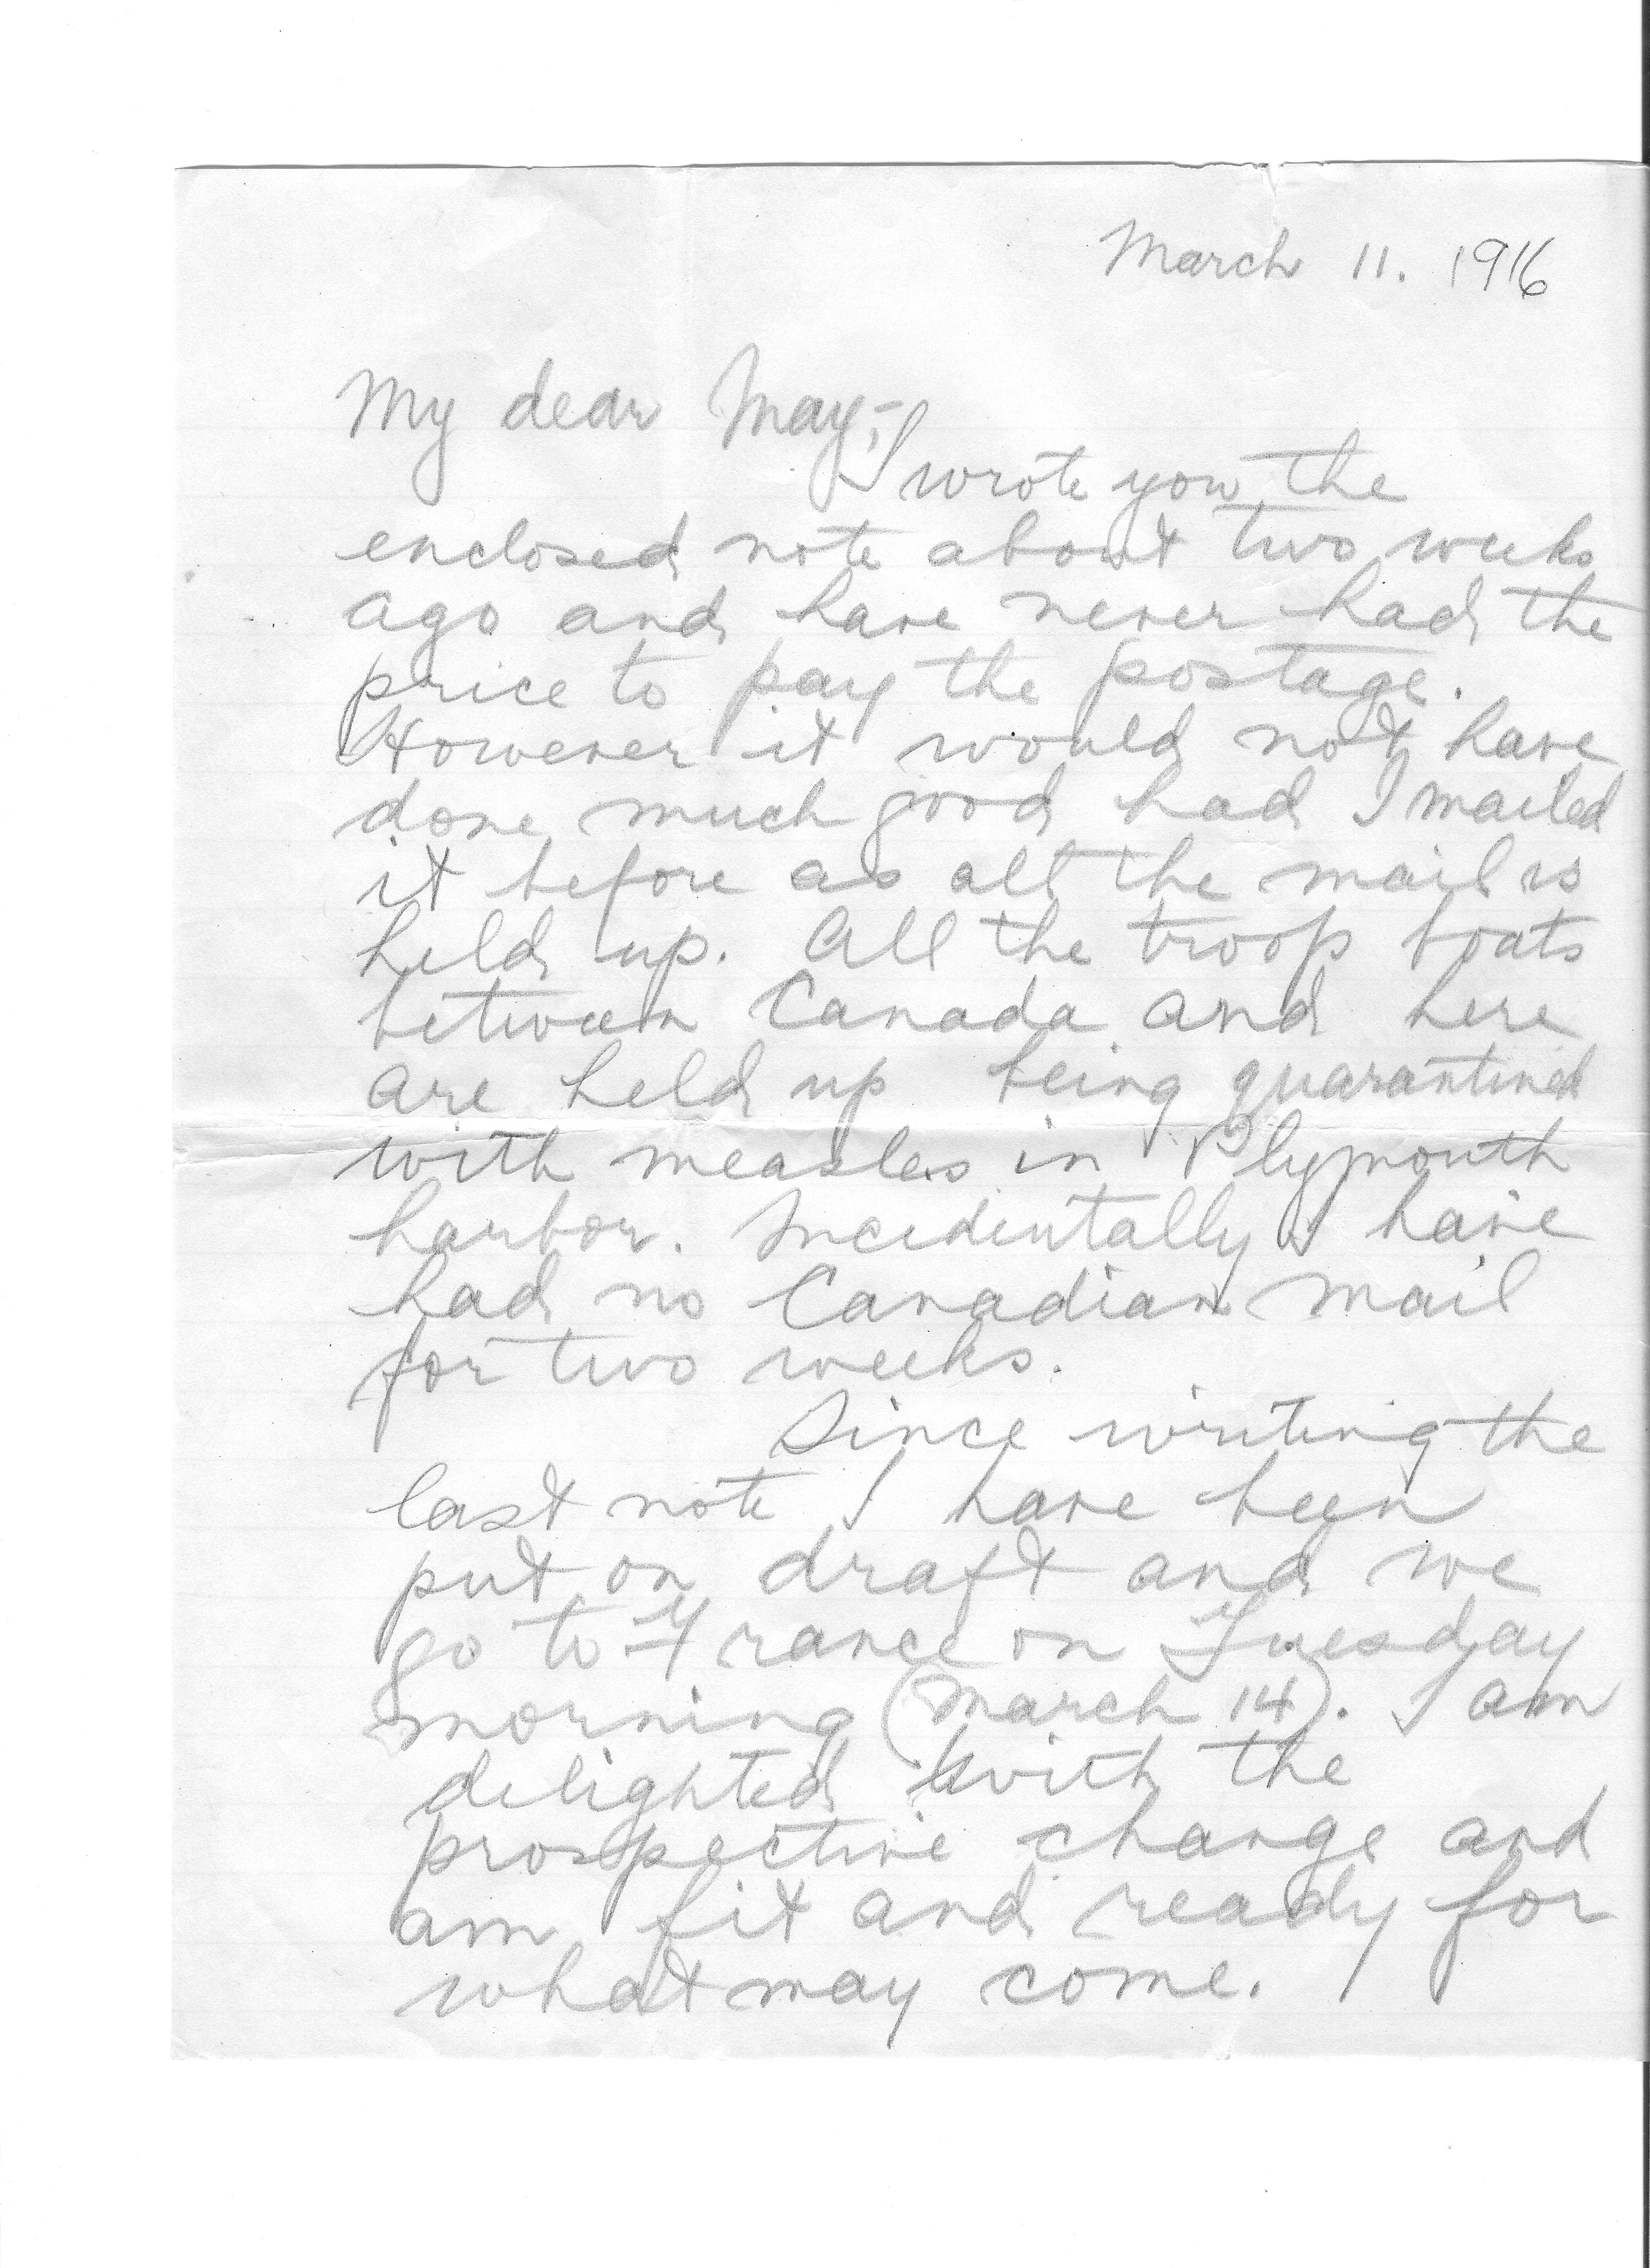 March 11. 1916
My dear May;-
I wrote you the
enclosed note about two weeks
ago and have never had the
price to pay the postage.
However it would not have
done much good had I mailed
it before as all the mail is
held up. All the troop boats
between Canada and here
are held up being quarantined
with measles in Plymouth
harbor. Incidentally I have
had no Canadian mail
for two weeks.
Since writing the
last note I have been
put on draft and we
go to France on Tuesday
morning (March 14). I am
delighted with the
prospective change and
am fit and ready for
what may come.